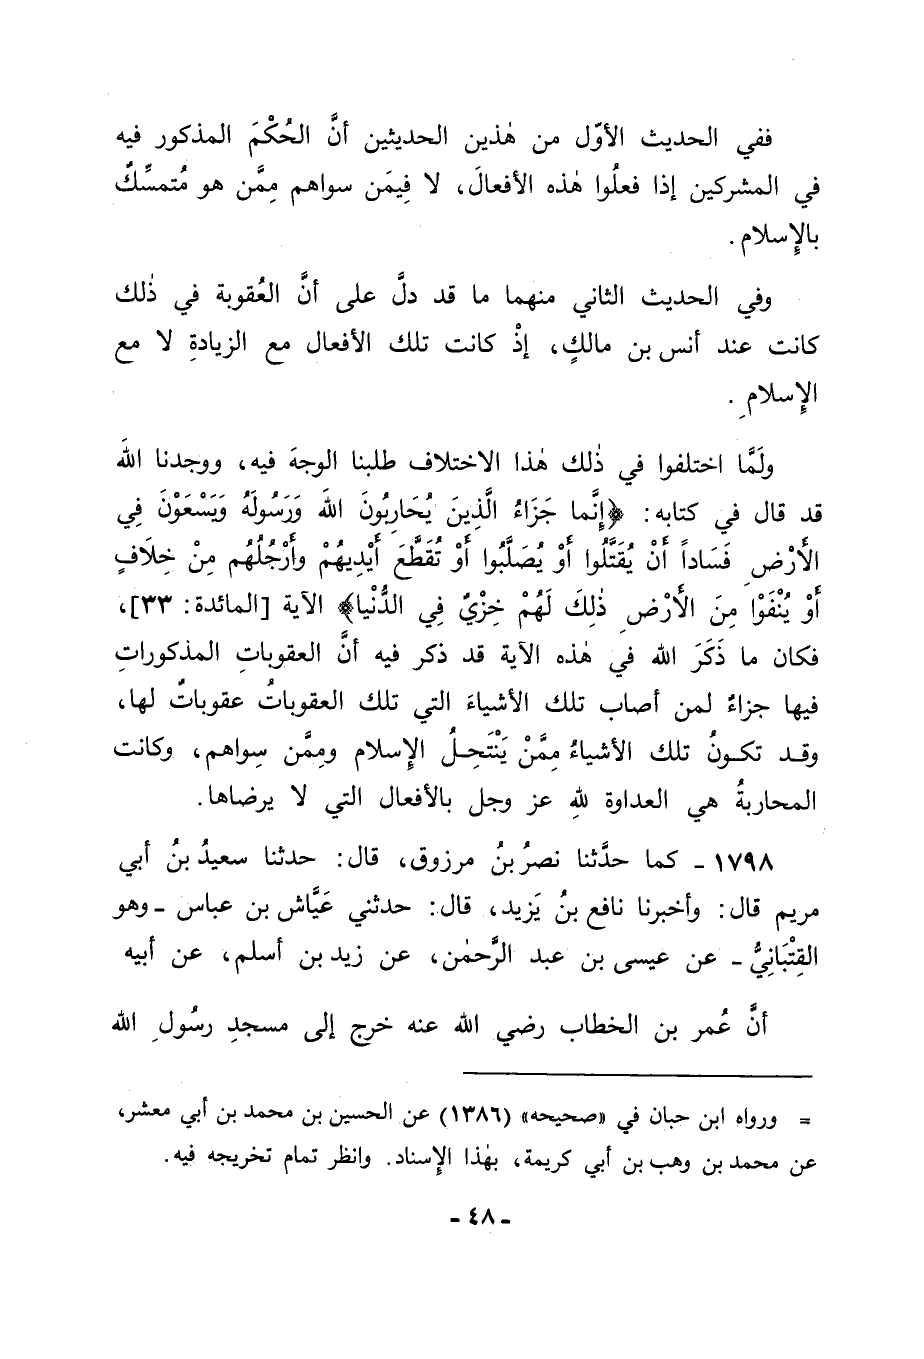 ففي الحديث الأوّل من هٰذين الحديثين أنَّ الحُكْمَ المذكور فيه
في المشركين إذا فعلُوا هٰذه الأفعالَ، لا فِيمَن سواهم مِمَّن هو مُتمسِّكٌ
بالإِسلام.
وفي الحديث الثاني منهما ما قد دلَّ على أنَّ العُقوبة في ذٰلك
كانت عند أنس بن مالكٍ، إذْ كانت تلك الأفعال مع الزيادةِ لا مع
الإِسلامِ.
ولَمَّا اختلفوا في ذٰلك هٰذا الاختلاف طلبنا الوجهَ فيه، ووجدنا اللهَ
قد قال في كتابه: ﴿إِنَّما جَزَاءُ الَّذِينَ يُحَارِبُونَ اللهَ وَرَسُولَهُ وَيَسْعَوْنَ فِي
الأَرْضِ فَسَاداً أَنْ يُقَتَّلُوا أَوْ يُصَلَّبُوا أَوْ تُقَطَّعَ أَيْدِيهُمْ وأَرْجُلُهُم مِنْ خِلَافٍ
أَوْ يُنْفَوْا مِنَ الأَرْضِ ذٰلِكَ لَهُمْ خِزْيٌ فِي الدُّنْيا﴾ الآية [المائدة: ٣٣]،
فكان ما ذَكَرَ الله في هٰذه الآية قد ذكر فيه أنَّ العقوباتِ المذكوراتِ
فيها جزاءٌ لمن أصاب تلك الأشياءَ التي تلك العقوباتُ عقوباتٌ لها،
وقد تكونُ تلك الأشياءُ مِمَّنْ يَنْتَحِلُ الإِسلام ومِمَّن سِواهم، وكانت
المحاربةُ هي العداوة للهِ عز وجل بالأفعال التي لا يرضاها.
١٧٩٨ - كما حدَّثنا نصرُ بنُ مرزوق، قال: حدثنا سعيدُ بنُ أبي
مريم قال: وأخبرنا نافع بنُ يَزيد، قال: حدثني عَيَّاش بن عباس - وهو
القِتْبَانِيُّ - عن عيسى بن عبد الرَّحمٰن، عن زيد بن أسلم، عن أبيه
أنَّ عُمر بن الخطاب رضي الله عنه خرج إلى مسجدِ رسُولِ الله
= ورواه ابن حبان في «صحيحه» (١٣٨٦) عن الحسين بن محمد بن أبي معشر،
عن محمد بن وهب بن أبي كريمة، بهٰذا الإِسناد. وانظر تمام تخريجه فيه.
- ٤٨ -